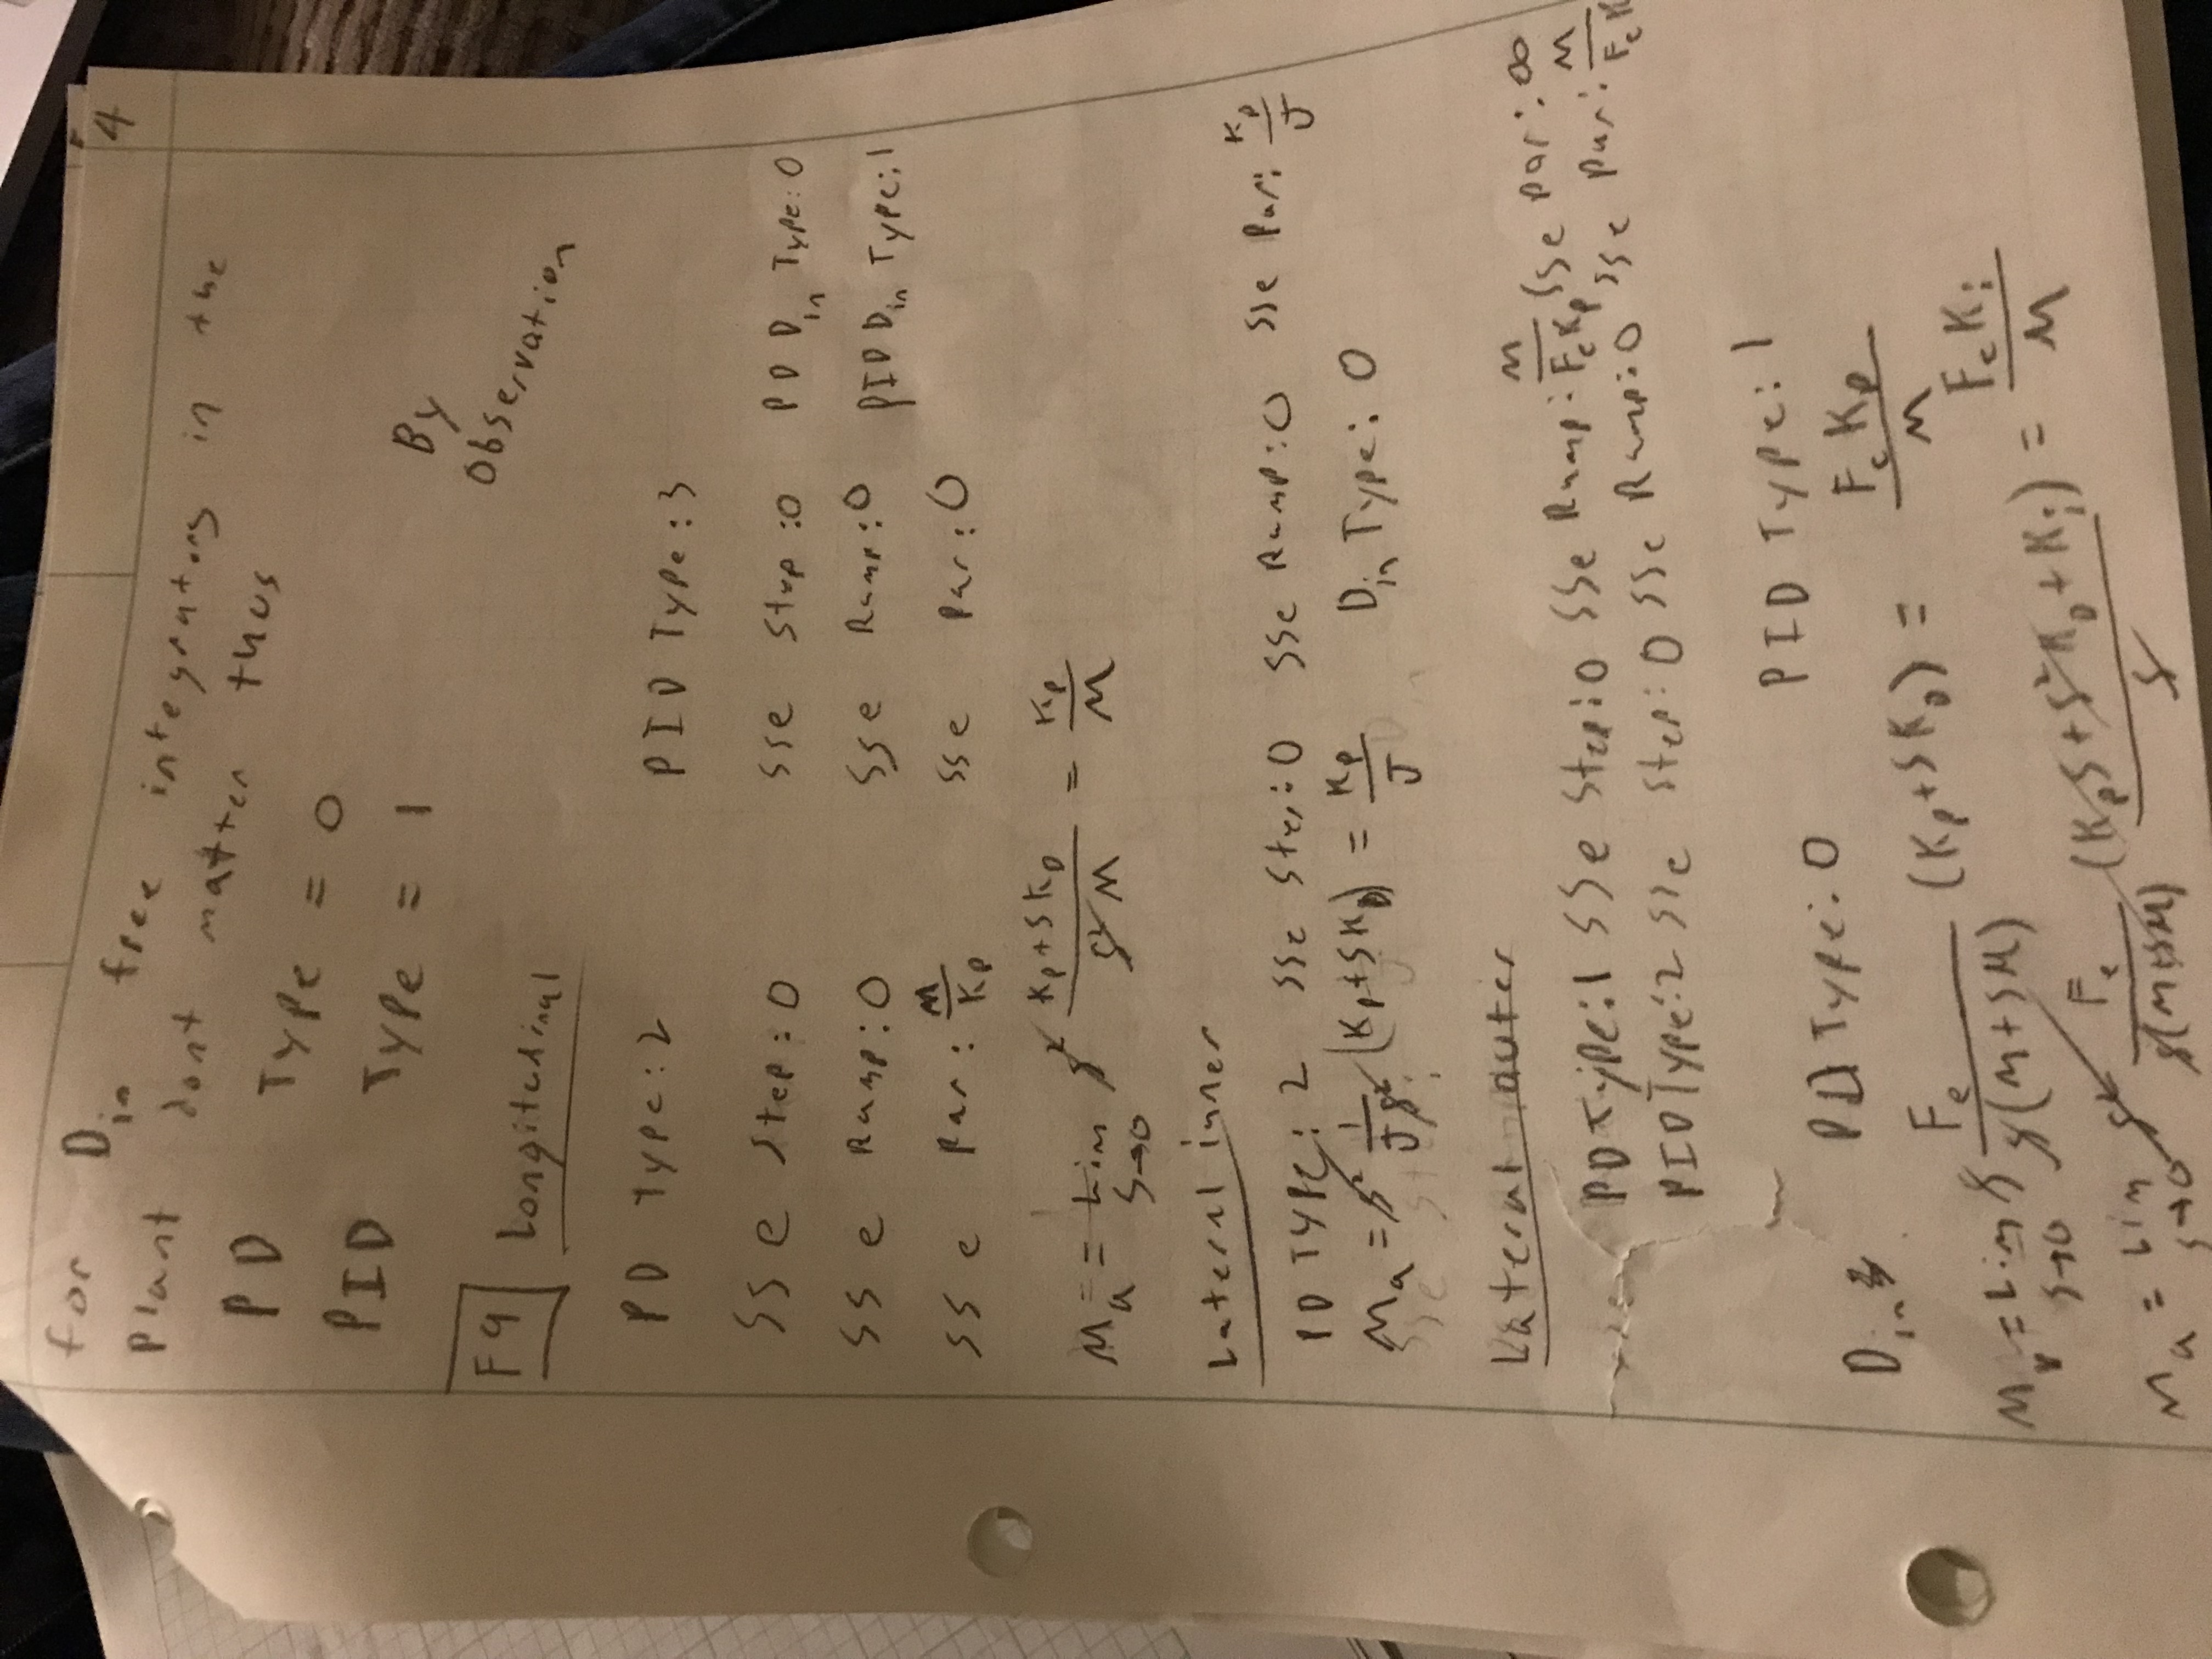 4
for Din free integrators in the
plant dont matter thus
PD Type = 0
PID Type = 1
By
Observation
F9 Longitudinal
PD Type: 2 PID Type: 3
SSe Step: 0 SSe Step: 0 PD Din Type: 0
SSe Ramp: 0 SSe Ramp: 0 PID Din Type: 1
SSe Par: M/KP SSe Par: 0
Ma = = Lim s→0 s² (KP+SKD)/(s²M) = KP/M
Lateral inner
PD Type: 2 SSe Step: 0 SSe Ramp: 0 SSe Par: KP/J
Ma = s² 1/(Js²) (KP+SKD) = KP/J Din Type: 0
Lateral outer
PD Type: 1 SSe Step: 0 SSe Ramp: M/(FeKP) SSe par: ∞
PID Type: 2 SSe Step: 0 SSe Ramp: 0 SSe Par: M/(FeK
Din PD Type: 0 PID Type: 1
Mv = Lim s→0 s Fe/(s(m+sM)) (KP+SKD) = FeKP/M
Ma = Lim s→0 s² Fe/(s(m+sM)) (KPS+S²KD+Ki)/s = FeKi/M